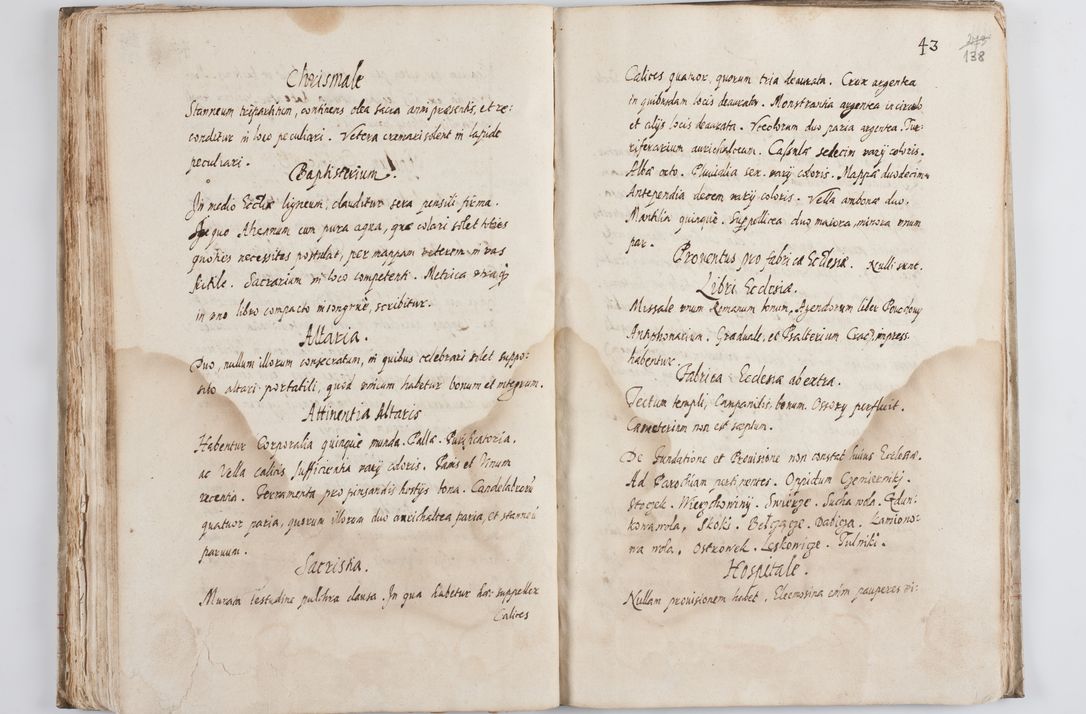 Chrismale
Stanneum tripartitum, continens olea sacra anni præsentis, et re:
conditur in loco peculiari. Vetera cremari solent in lapide
peculiari.
Baptisterium.
In medio Eccliæ ligneum, clauditur sera pensili firma.
In quo Ahenum cum pura aqua, quæ colari solet toties
quoties necessitas postulat, per mappam veterem in vas
fictile. Sacrarium in loco competenti. Metrica
in uno libro compacto incongruè, scribitur.
Altaria.
Duo, nullum illorum consecratum, in quibus celebrari solet suppo:
sito altari portatili, quod unicum habetur bonum et integrum.
Attinentia Altaris
Habentur Corporalia quinque munda. Pallæ. Purificatoria,
ac Vella calicis sufficientia varij coloris. Panis et Vinum
recentia. Ferramenta pro pinsandis hostijs bona. Candelabrorū
quatuor paria, quorum illorum duo aurichalcea paria, et stanneū
paruum.
Sacristia.
Murata testudine pulchra clausa. In qua habetur hæc suppellex
Calices
43
138
Calices quatuor, quorum tria deaurata. Crux argentea
in quibusdam locis deaurata. Monstrantia argentea in circulo
et alijs locis deaurata. Vrceolorum duo paria argentea. Tur:
riferarium aurichalceum. Casulæ sedecim varij coloris.
Albæ octo. Pluvialia sex varij coloris. Mappæ duodecim
Antependia decem varij coloris. Vella ambonæ duo.
Mantilia quinque. Suppellicea duo maiora, minora unum
par.
Proventus pro fabrica Ecclesiæ. Nulli sunt.
Libri Ecclesiæ.
Missale unum Romanum bonum, Agendorum liber
Antiphonarium. Graduale, et Psalterium Crac: impress
habentur
Fabrica Ecclesiæ ab extra.
Tectum templi, Campanilis bonum. Ossory perfluit.
Cæmeterium non est sæptum.
De Fundatione et Provisione non constat huius Ecclesiæ.
Ad Parochiam pertinentes. Oppidum Czemierniki.
Stoczek. Wierzchowiny. Swierze. Sucha wola. Edun:
kowawola, Skoki. Belczącze. Bablcza. Kamiono:
wa wola, Ostrowek. Leskowicze. Tulniki.
Hospitale.
Nullam prouisionem habet, Eleemosina enim pauperes vi: